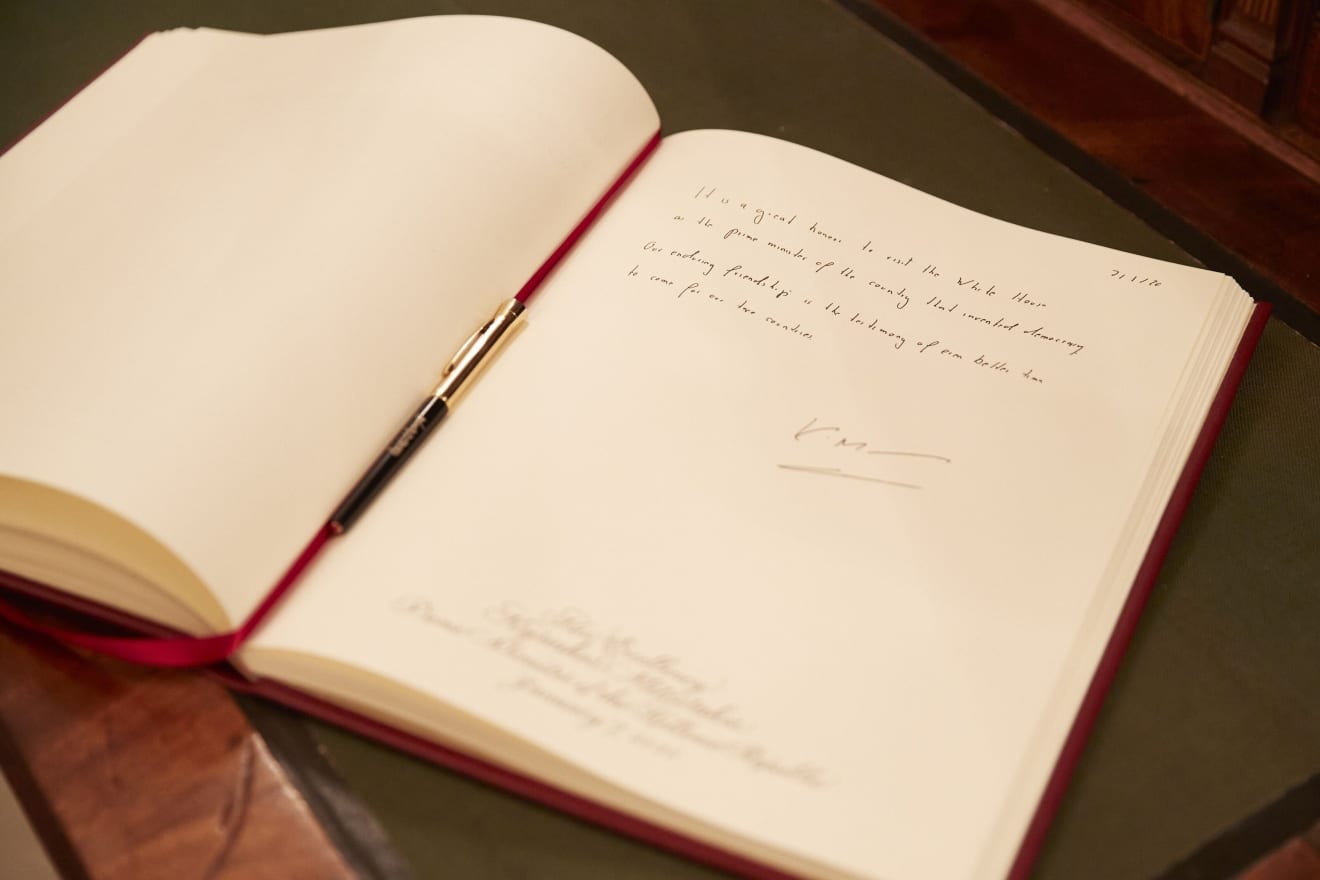 7/1/20
It is a great honour to visit the White House
as the prime minister of the country that invented democracy
Our enduring friendship is the testimony of even better time
to come for our two countries.
K. M
His Excellency
Kyriakos Mitsotakis
Prime Minister of the Hellenic Republic
January 7, 2020